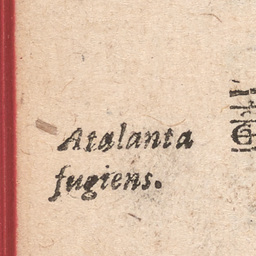 Atalanta
fugiens.